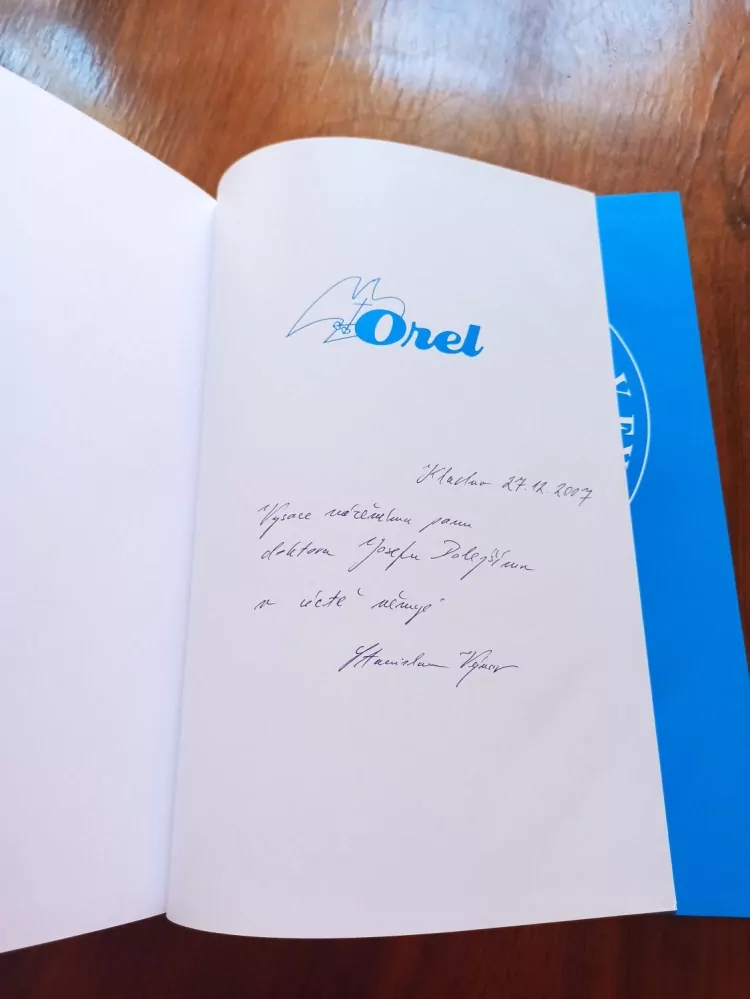 Orel
Kladno 27.12.2007
Vysoce váženému panu
doktoru Josefu Dolejšímu
v úctě věnuje
Stanislav
V EV